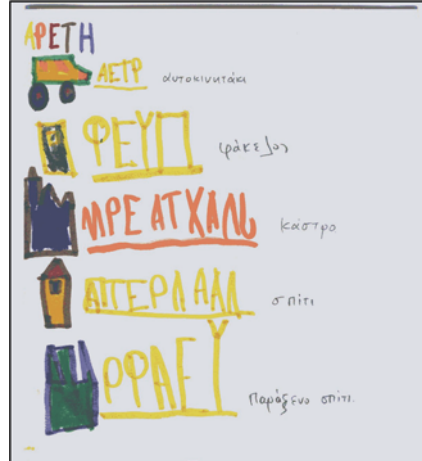 ΑΡΕΤΗ
ΑΕΤΡ αυτοκινητακι
ΦΕΥΠ φάκελος
ΜΡΕ ΑΤΧΑΛΙ κάστρο
ΑΠΕΡΛΑΛΛ σπίτι
ΡΡΑΕΥ Παράξενο σπίτι.